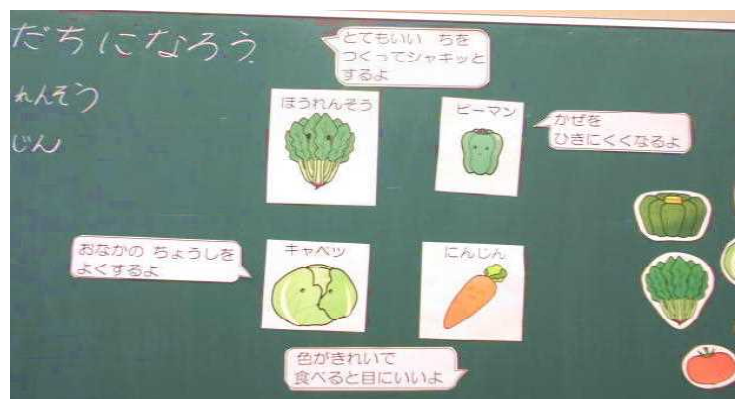 だちになろう
れんそう
じん
とてもいい ちを
つくってシャキッと
するよ
ほうれんそう
ピーマン
かぜを
ひきにくくなるよ
おなかの ちょうしを
よくするよ
キャベツ
にんじん
色がきれいで
食べると目にいいよ